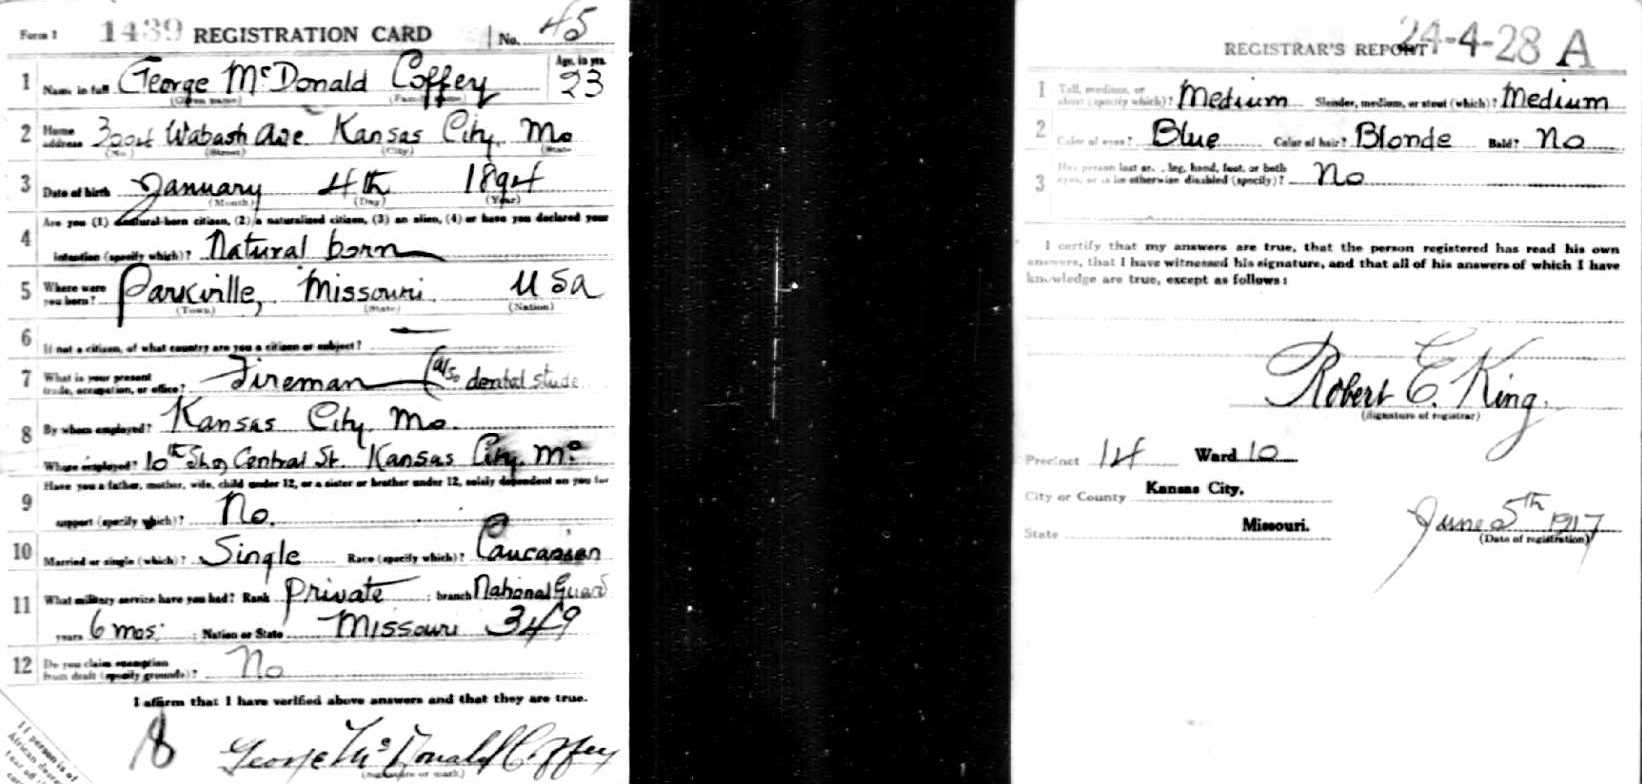 Form 1 1439 REGISTRATION CARD No. 45
1 Name in full George McDonald Coffey Age, in yrs. 23
(Given name) (Family name)
2 Home address Wabash Ave Kansas City, Mo
(No.) (Street) (City) (State)
3 Date of birth January 4th 1894
(Month) (Day) (Year)
4 Are you (1) a natural-born citizen, (2) a naturalized citizen, (3) an alien, (4) or have you declared your
intention (specify which)? Natural born
5 Where were you born? Parkville, Missouri. USA
(Town) (State) (Nation)
6 If not a citizen, of what country are you a citizen or subject? —
7 What is your present trade, occupation, or office? Fireman (also dental stude
8 By whom employed? Kansas City, Mo.
Where employed? 10th Central St. Kansas City, Mo
9 Have you a father, mother, wife, child under 12, or a sister or brother under 12, solely dependent on you for
support (specify which)? No.
10 Married or single (which)? Single Race (specify which)? Caucasian
11 What military service have you had? Rank Private ; branch National Guard
years 6 mos. ; Nation or State Missouri 349
12 Do you claim exemption from draft (specify grounds)? No
I affirm that I have verified above answers and that they are true.
18 George McDonald Coffey
(Signature or mark)
If person is of
African
tear off
REGISTRAR'S REPORT 24-4-28 A
1 Tall, medium, or short (specify which)? Medium Slender, medium, or stout (which)? Medium
2 Color of eyes? Blue Color of hair? Blonde Bald? No
3 Has person lost arm, leg, hand, foot, or both eyes, or is he otherwise disabled (specify)? No
I certify that my answers are true, that the person registered has read his own
answers, that I have witnessed his signature, and that all of his answers of which I have
knowledge are true, except as follows:
Robert C. King.
(Signature of registrar)
Precinct 14 Ward 10
City or County Kansas City,
State Missouri.
June 5th 1917
(Date of registration)